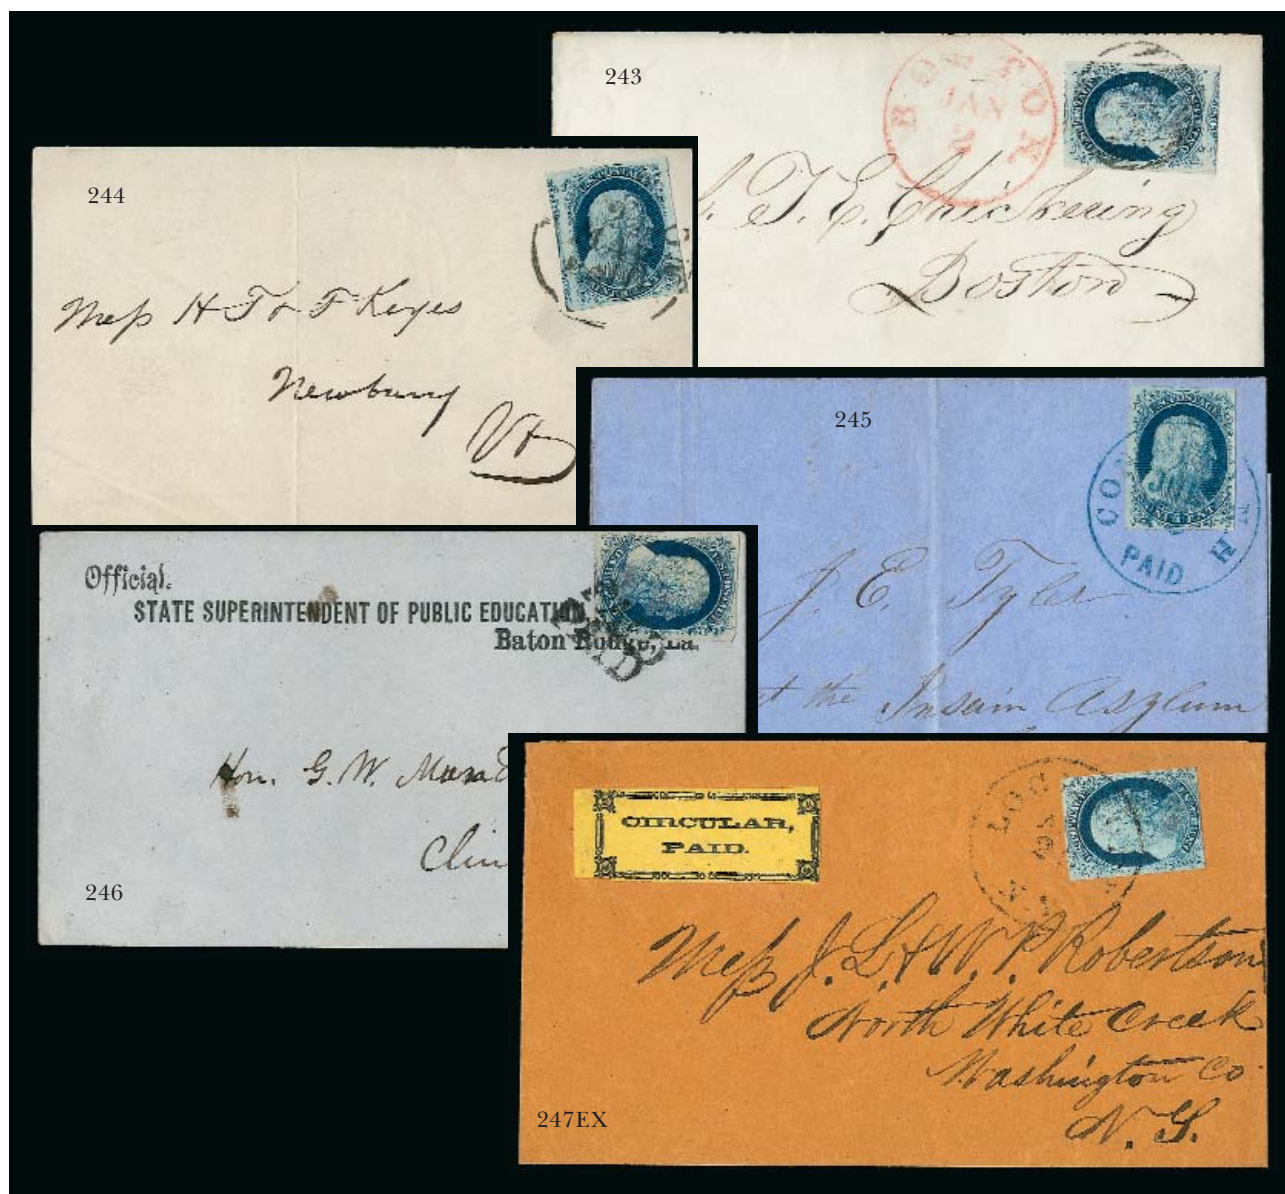 243
BOSTON
JAN
2
T. E. Chickering
Boston
244
Mess H T & F Keyes
Newbury
Vt
245
CO N.H
PAID
J. E. Tyler
at the Insain Asylum
Official.
STATE SUPERINTENDENT OF PUBLIC EDUCATION,
Baton Rouge, La.
PAID
Hon. G. W. Mund
Clin
246
CIRCULAR,
PAID.
LOC
N.Y.
Mess J. L & W. P. Robertson
North White Creek
Washington Co
N. Y.
247EX